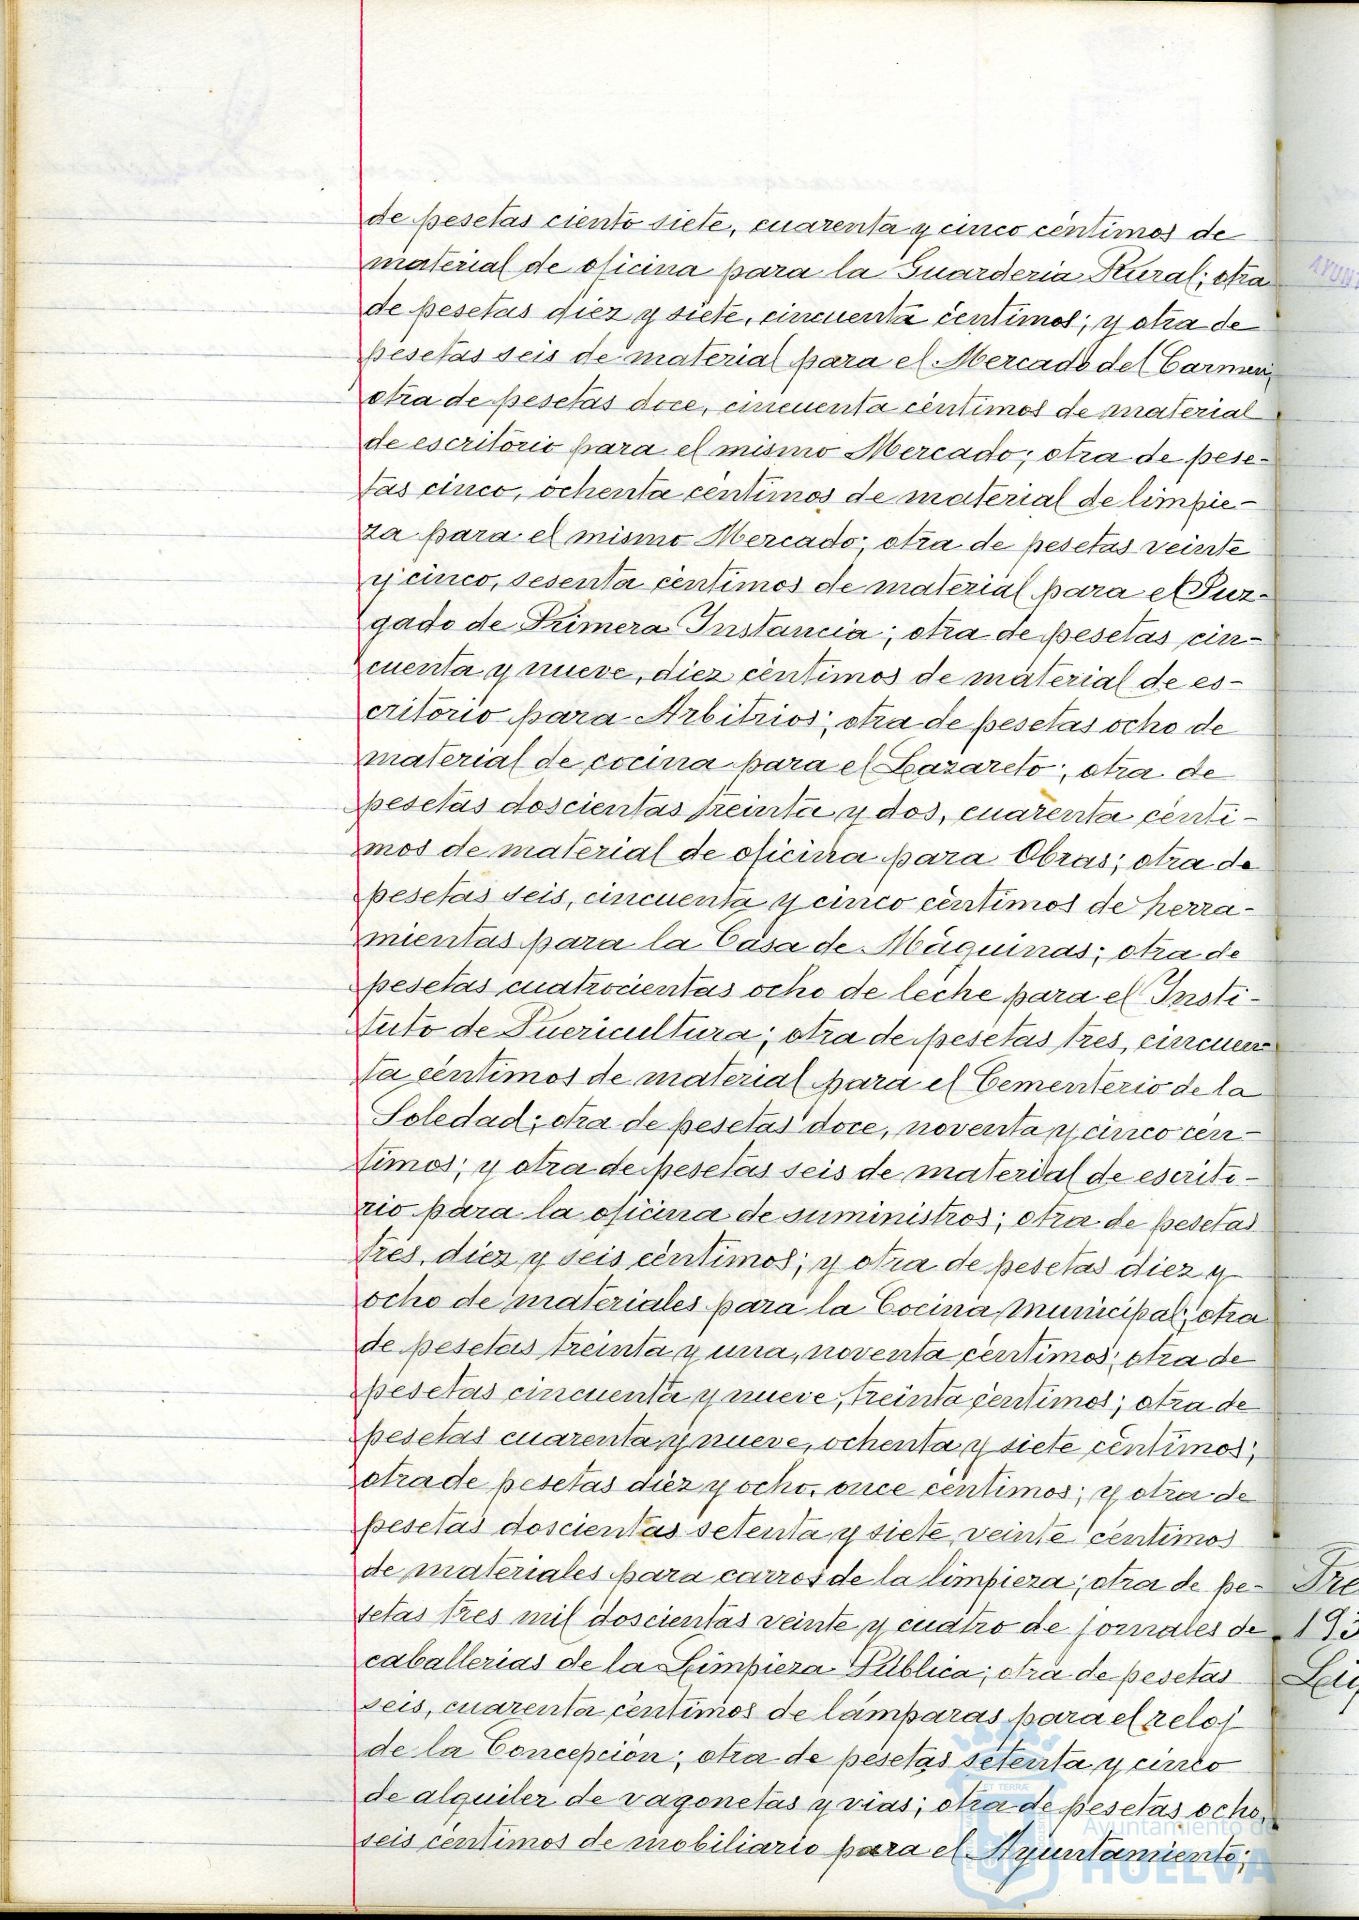 de pesetas ciento siete, cuarenta y cinco céntimos de
material de oficina para la Guarderia Rural; otra
de pesetas diez y siete, cincuenta céntimos; y otra de
pesetas seis de material para el Mercado del Carmen;
otra de pesetas doce, cincuenta céntimos de material
de escritorio para el mismo Mercado; otra de pese-
tas cinco, ochenta céntimos de material de limpie-
za para el mismo Mercado; otra de pesetas veinte
y cinco, sesenta céntimos de material para el Juz-
gado de Primera Instancia; otra de pesetas cin-
cuenta y nueve, diez céntimos de material de es-
critorio para Arbitrios; otra de pesetas ocho de
material de cocina para el Lazareto; otra de
pesetas doscientas treinta y dos, cuarenta cénti-
mos de material de oficina para Obras; otra de
pesetas seis, cincuenta y cinco céntimos de herra-
mientas para la Casa de Máquinas; otra de
pesetas cuatrocientas ocho de leche para el Insti-
tuto de Puericultura; otra de pesetas tres, cincuen-
ta céntimos de material para el Cementerio de la
Soledad; otra de pesetas doce, noventa y cinco cén-
timos; y otra de pesetas seis de material de escrito-
rio para la oficina de suministros; otra de pesetas
tres, diez y seis céntimos; y otra de pesetas diez y
ocho de materiales para la Cocina municipal; otra
de pesetas treinta y una, noventa céntimos; otra de
pesetas cincuenta y nueve, treinta céntimos; otra de
pesetas cuarenta y nueve, ochenta y siete céntimos;
otra de pesetas diez y ocho, once céntimos; y otra de
pesetas doscientas setenta y siete, veinte céntimos
de materiales para carros de la limpieza; otra de pe-
setas tres mil doscientas veinte y cuatro de jornales de
caballerias de la Limpieza Pública; otra de pesetas
seis, cuarenta céntimos de lámparas para el reloj
de la Concepción; otra de pesetas setenta y cinco
de alquiler de vagonetas y vias; otra de pesetas ocho,
seis céntimos de mobiliario para el Ayuntamiento;
Ayuntamiento de
HUELVA